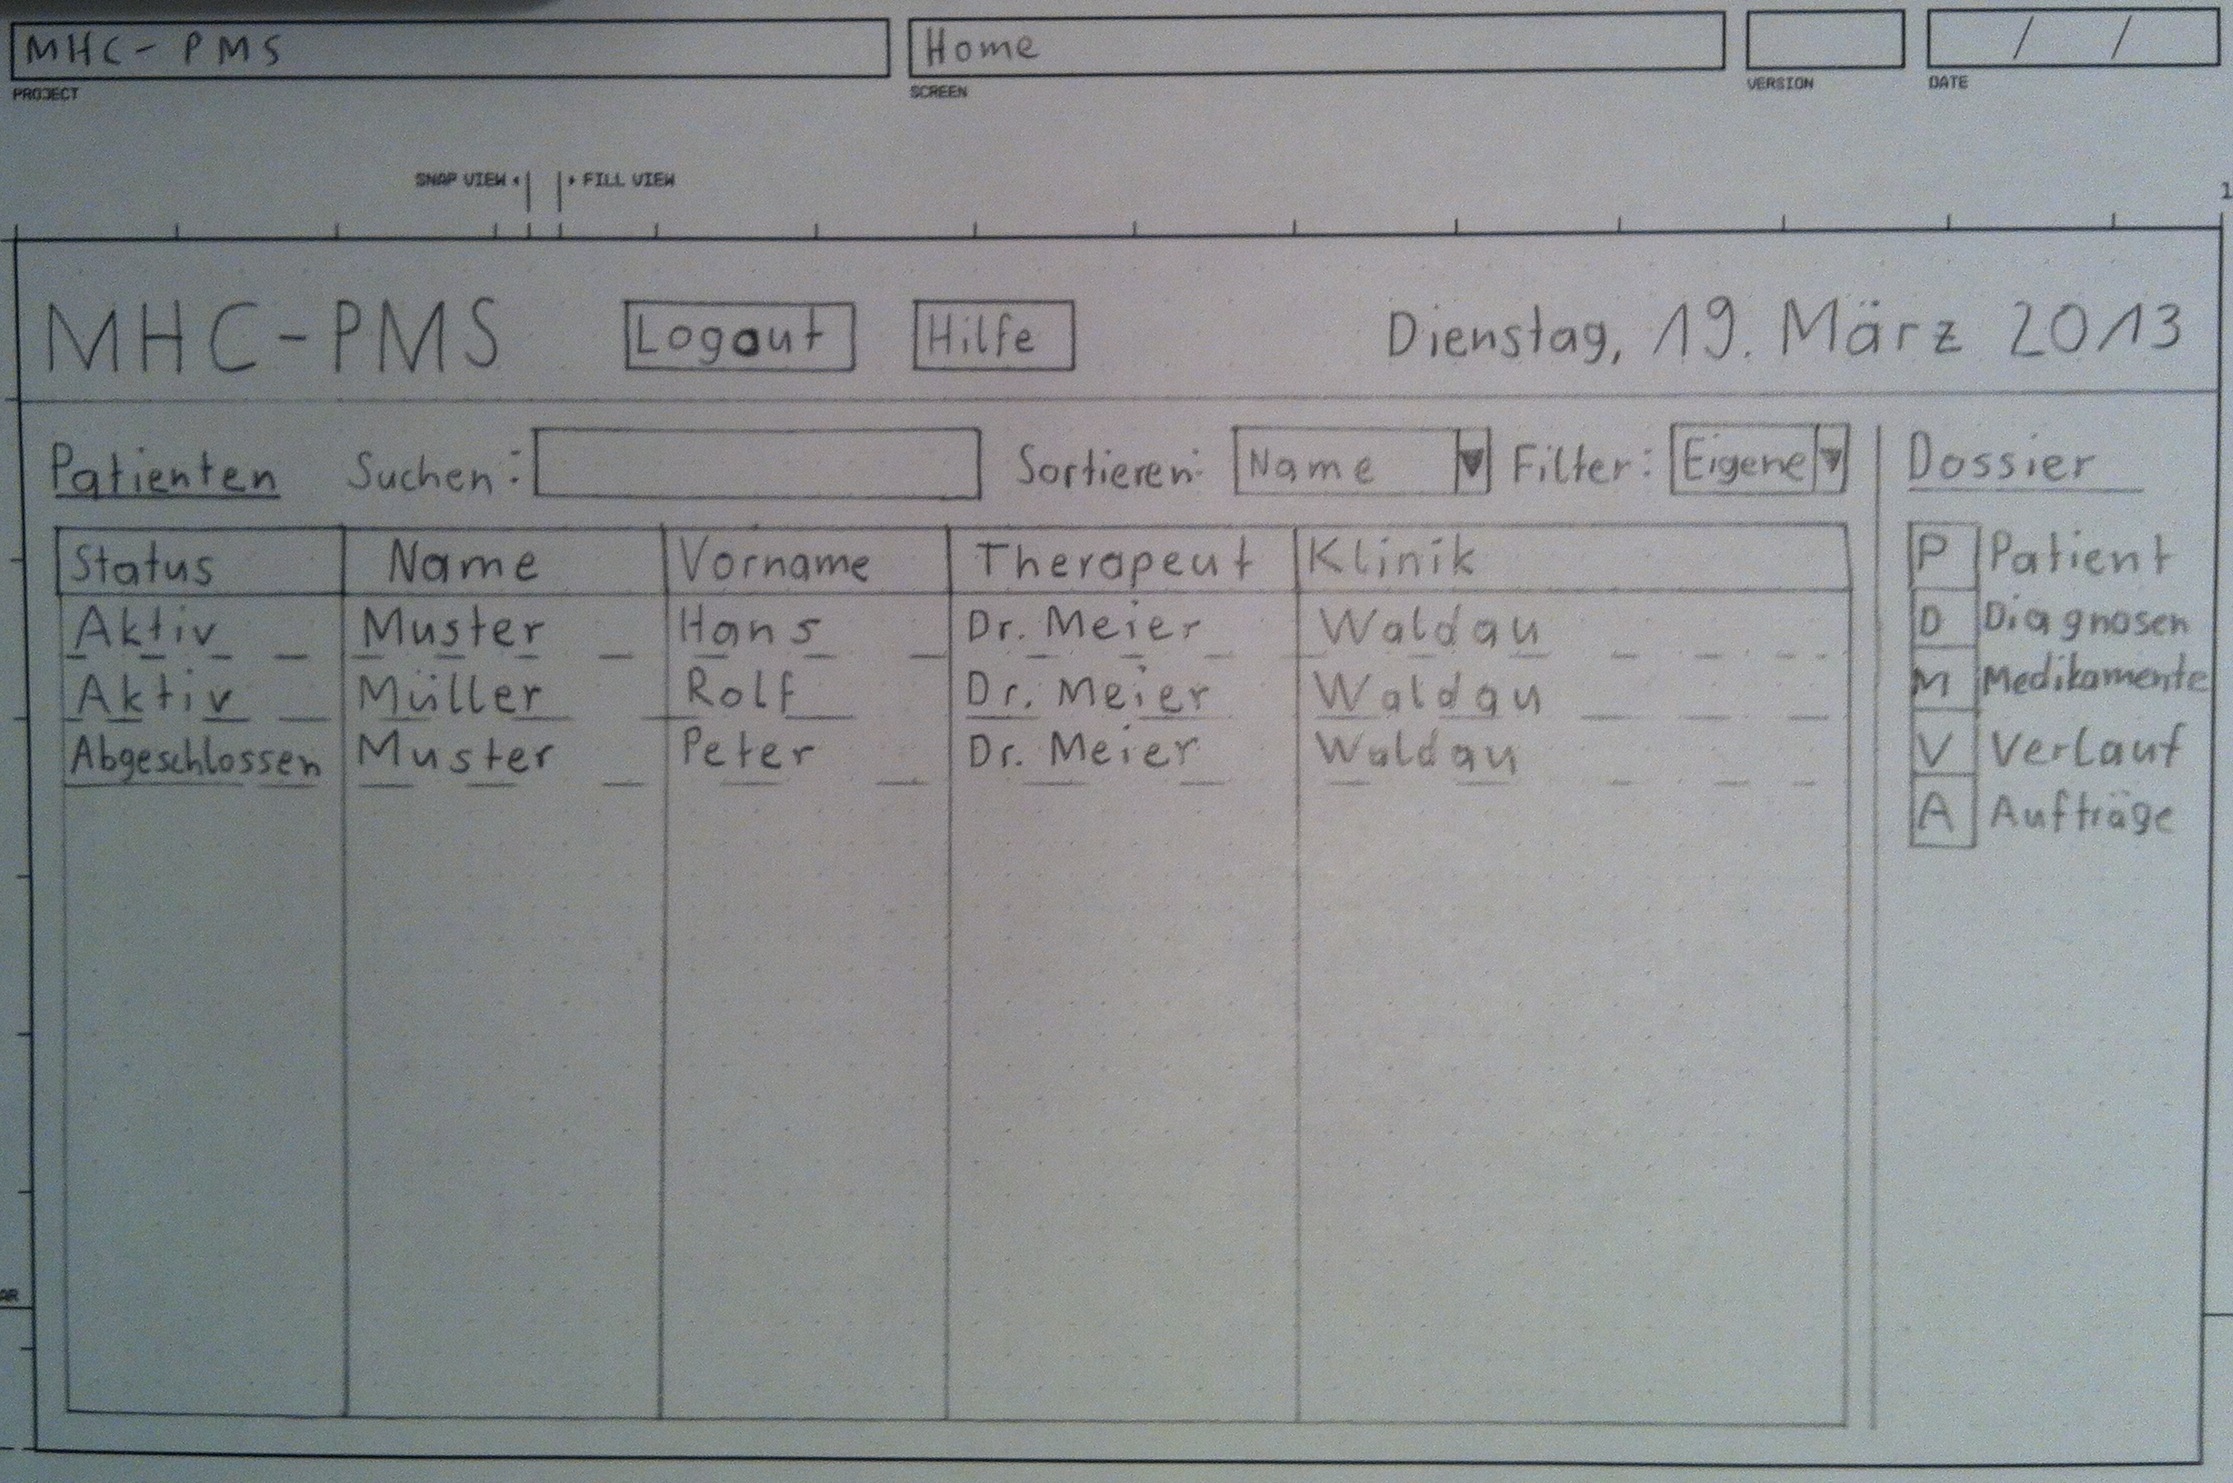 MHC-PMS Home / /
PROJECT SCREEN VERSION DATE
SNAP VIEW FILL VIEW
1
MHC-PMS Logout Hilfe Dienstag, 19. März 2013
Patienten Suchen: Sortieren: Name Filter: Eigene Dossier
Status Name Vorname Therapeut Klinik
Aktiv Muster Hans Dr. Meier Waldau
Aktiv Müller Rolf Dr. Meier Waldau
Abgeschlossen Muster Peter Dr. Meier Waldau
P Patient
D Diagnosen
M Medikamente
V Verlauf
A Aufträge
AR